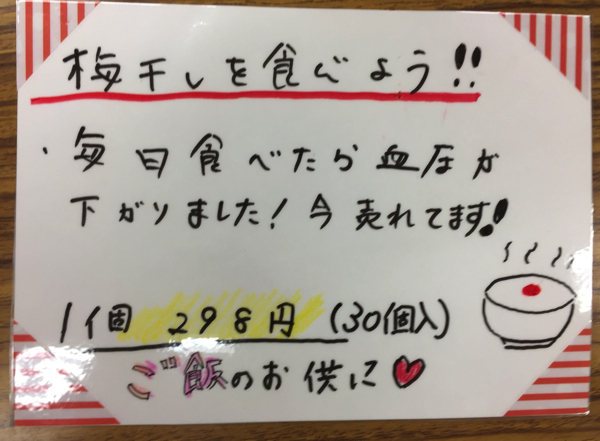 梅干しを食べよう!!
・毎日食べたら血圧が
下がりました!今売れてます!
1個 298円 (30個入)
ご飯のお供に♥